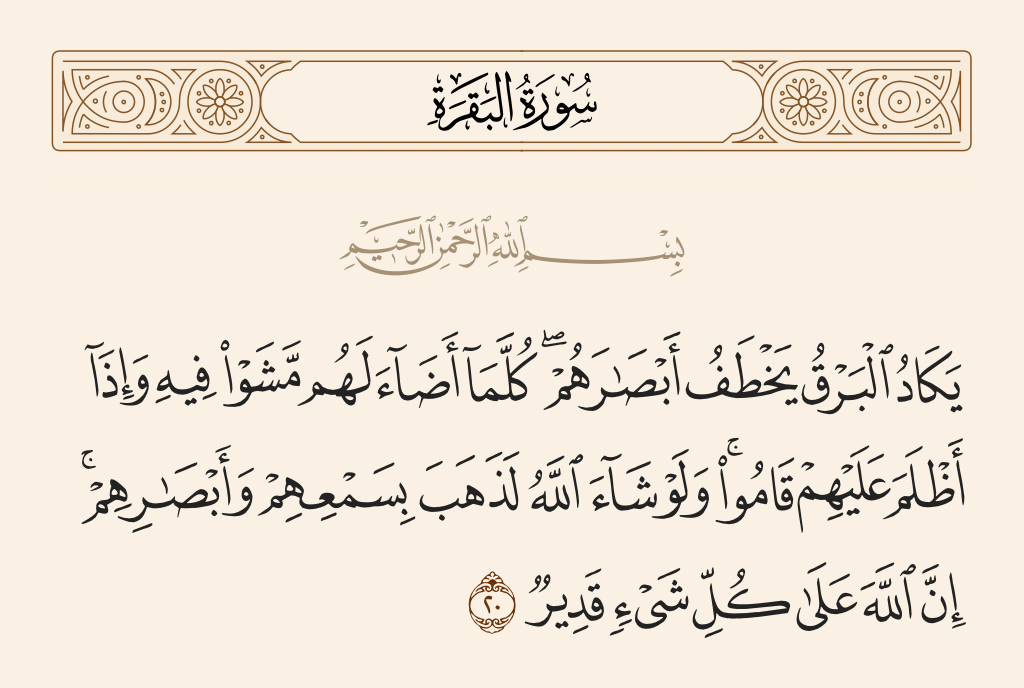 سُورَةُ البَقَرَةِ
بِسْمِ ٱللَّهِ ٱلرَّحْمَٰنِ ٱلرَّحِيمِ
يَكَادُ ٱلْبَرْقُ يَخْطَفُ أَبْصَٰرَهُمْ ۖ كُلَّمَآ أَضَآءَ لَهُم مَّشَوْا۟ فِيهِ وَإِذَآ
أَظْلَمَ عَلَيْهِمْ قَامُوا۟ ۚ وَلَوْ شَآءَ ٱللَّهُ لَذَهَبَ بِسَمْعِهِمْ وَأَبْصَٰرِهِمْ ۚ
إِنَّ ٱللَّهَ عَلَىٰ كُلِّ شَىْءٍ قَدِيرٌ ٢٠